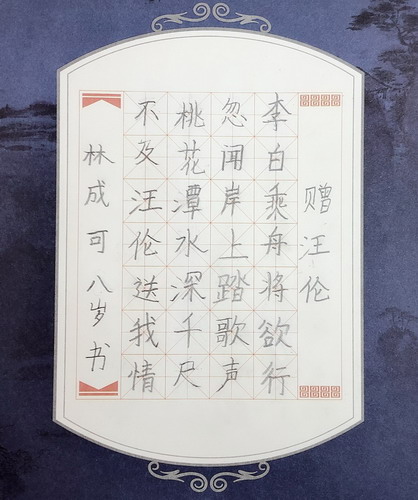 赠汪伦
李白乘舟将欲行
忽闻岸上踏歌声
桃花潭水深千尺
不及汪伦送我情
林成可八岁书